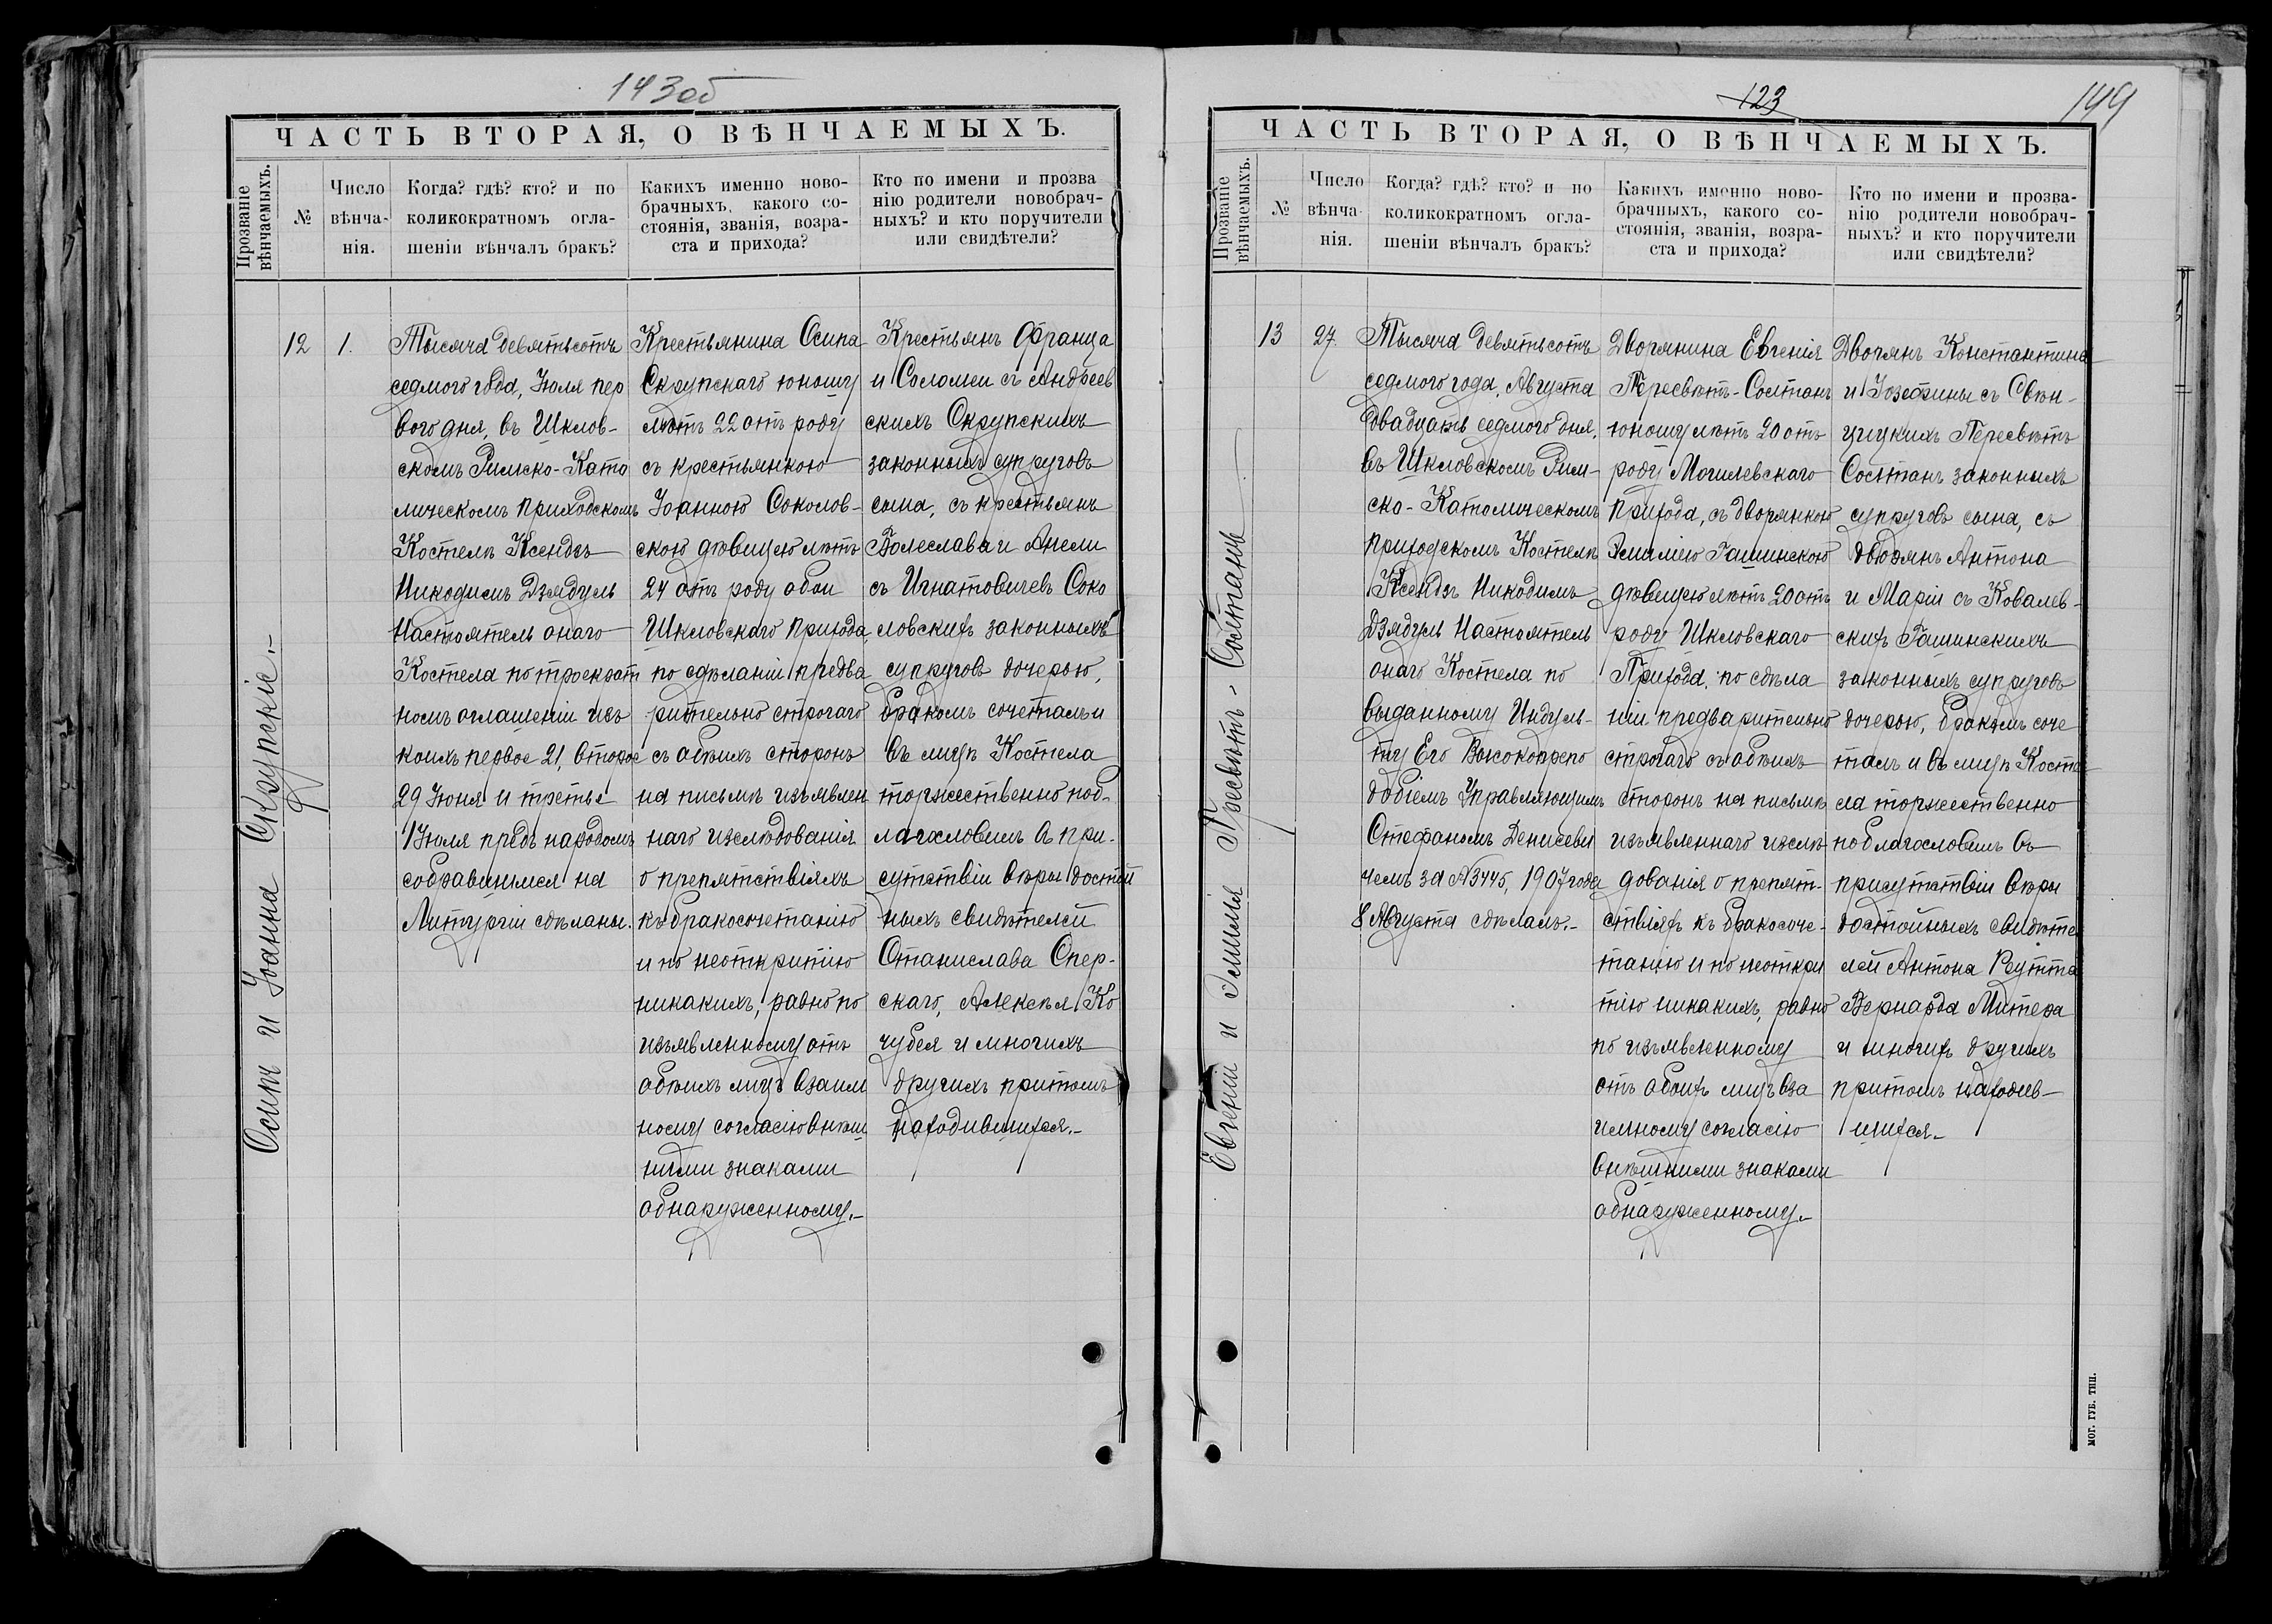 143 об
ЧАСТЬ ВТОРАЯ, О ВѢНЧАЕМЫХЪ.
Прозваніе вѣнчаемыхъ.
№
Число вѣнча- нія.
Когда? гдѣ? кто? и по
коликократномъ огла-
шеніи вѣнчалъ бракъ?
Какихъ именно ново-
брачныхъ, какого со-
стоянія, званія, возра-
ста и прихода?
Кто по имени и прозва
нію родители новобрач-
ныхъ? и кто поручители
или свидѣтели?
Осипъ и Іоанна Скрупскіе.-
12
1.
Тысяча девятьсотъ
седмого года, Іюля пер
вого дня, въ Шклов-
скомъ Римско-Като
лическомъ приходскомъ
Костелѣ Ксендзъ
Никодимъ Дзядуль
Настоятель онаго
Костела по троекрат
номъ оглашеніи изъ
коихъ первое 21, второе
29 Іюня и третье
1 Іюля предъ народомъ
собравшимся на
Литургіи сдѣланы.
Крестьянина Осипа
Скрупскаго юношу
лѣтъ 22 отъ роду
съ крестьянкою
Іоанною Соколов-
скою дѣвицею лѣтъ
24 отъ роду обои
Шкловскаго прихода,
по сдѣланіи предва
рительно строгаго
съ обѣихъ сторонъ
на письмѣ изъявлен
наго изслѣдованія
о препятствіяхъ
къ бракосочетанію
и по неоткрытію
никакихъ, равно по
изъявленному отъ
обѣихъ лицъ взаим
ному согласію внѣш
ними знаками
обнаруженному.-
Крестьянъ Франца
и Соломеи съ Андреев
скихъ Скрупскихъ
законныхъ супруговъ
сына, съ крестьянъ
Болеслава и Анели
съ Игнатовичевъ Соко
ловскихъ законныхъ
супруговъ дочерью,
бракомъ сочеталъ и
въ лицѣ Костела
торжественно поб-
лагословилъ въ при-
сутствіи вѣры достой
ныхъ свидѣтелей
Станислава Спер-
скаго, Алексѣя Ко
чубея и многихъ
другихъ притомъ
находившихся.-
123
144
ЧАСТЬ ВТОРАЯ, О ВѢНЧАЕМЫХЪ.
Прозваніе вѣнчаемыхъ.
№
Число вѣнча- нія.
Когда? гдѣ? кто? и по
коликократномъ огла-
шеніи вѣнчалъ бракъ?
Какихъ именно ново-
брачныхъ, какого со-
стоянія, званія, возра-
ста и прихода?
Кто по имени и прозва-
нію родители новобрач-
ныхъ? и кто поручители
или свидѣтели?
Евгеній и Эмилія Пересвѣтъ-Солтанъ
13
27
Тысяча девятьсотъ
седмого года, Августа
двадцать седмого дня,
въ Шкловскомъ Рим-
ско-Католическомъ
приходскомъ Костелѣ
Ксендзъ Никодимъ
Дзядуль Настоятель
онаго Костела по
выданному Индуль-
ту Его Высокопрепо
добіемъ Управляющимъ
Стефаномъ Денисеви
чемъ за №3445, 1907 года
8 Августа сдѣлалъ.-
Дворянина Евгенія
Пересвѣтъ-Солтанъ
юношу лѣтъ 20 отъ
роду Могилевскаго
прихода, съ дворянкою
Эмиліею Гашинскою
дѣвицею лѣтъ 20 отъ
роду Шкловскаго
Прихода, по сдѣла
ніи предварительно
строгаго съ обѣихъ
сторонъ на письмѣ
изъявленнаго изслѣ
дованія о препят-
ствіяхъ къ бракосоче-
танію и по неоткры
тію никакихъ, равно
по изъявленному
отъ обоихъ лицъ вза
имному согласію
внѣшними знаками
обнаруженному.-
Дворянъ Константина
и Іозефины съ Свѣн-
цицкихъ Пересвѣтъ
Солтанъ законныхъ
супруговъ сына, съ
дворянъ Антона
и Маріи съ Ковалев-
скихъ Гашинскихъ
законныхъ супруговъ
дочерью, бракомъ соче
талъ и въ лицѣ Косте
ла торжественно
поблагословилъ въ
присутствіи вѣры
достойныхъ свидѣте
лей Антона Реутта
Бернарда Митера
и многихъ другихъ
притомъ находив-
шихся.-
МОГ. ГУБ. ТИП.